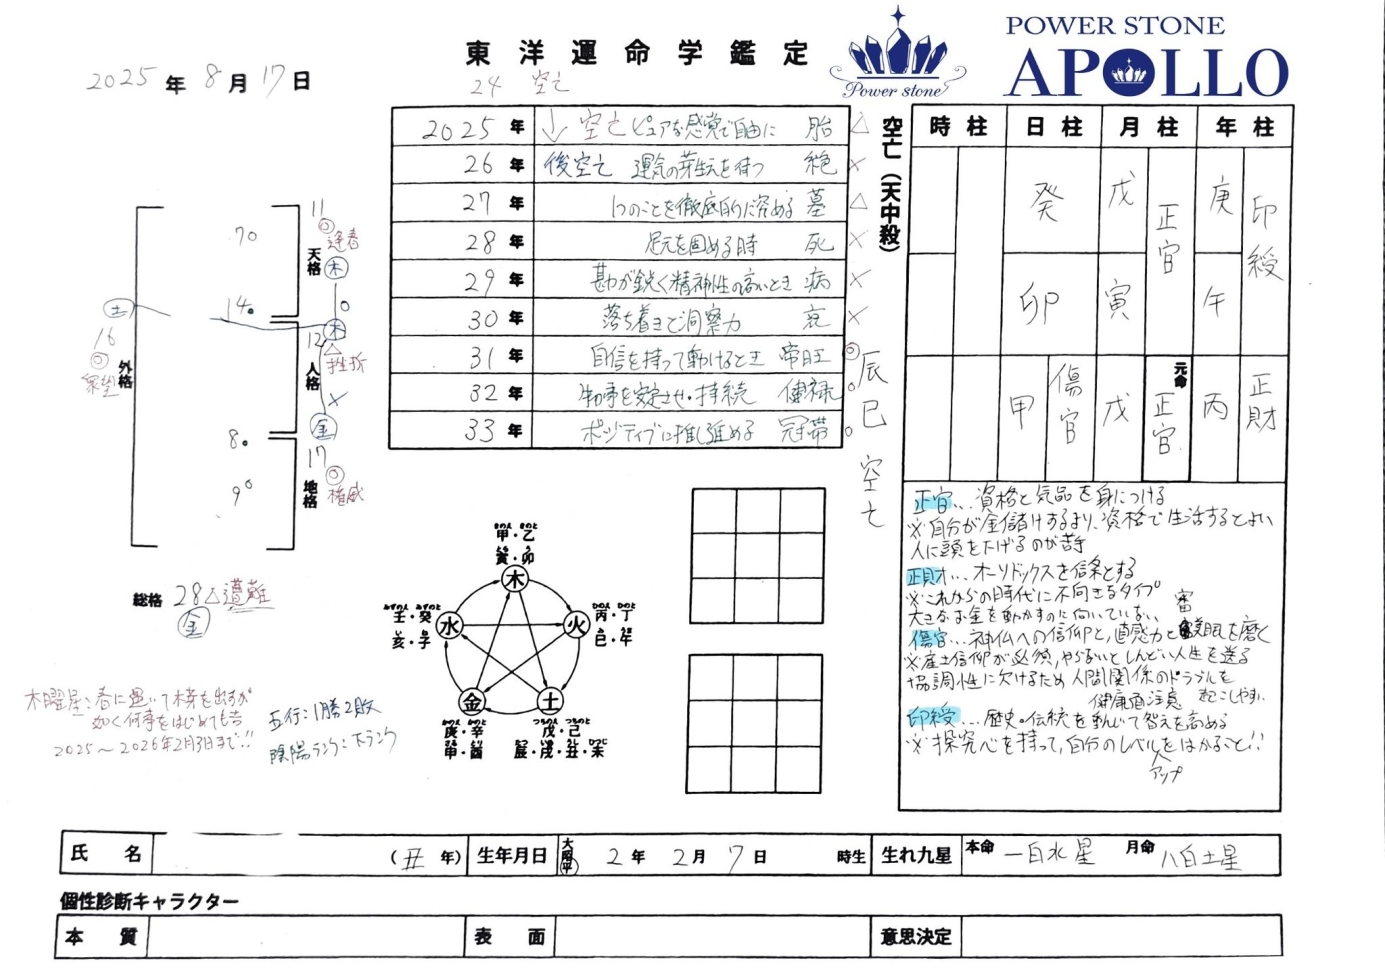 東洋運命学鑑定
Power stone
POWER STONE
APOLLO
2025年8月17日
24 空亡
2025年 ↓空亡 ピュアな感覚で自由に 胎 △
26年 後空亡 運気の芽生えを待つ 絶 ×
27年 1つのことを徹底的に究める 墓 △
28年 足元を固める時 死 ×
29年 勘が鋭く精神性の高いとき 病 ×
30年 落ち着きと洞察力 衰 ×
31年 自信を持って動けるとき 帝旺 ◎
32年 物事を安定させ・持続 健禄 ○
33年 ポジティブに推し進める 冠帯 ○
空亡(天中殺)
辰巳空亡
時柱 日柱 月柱 年柱
癸 戊 正官 庚 印綬
卯 寅 午
甲 傷官 戊 元命 正官 丙 正財
正官… 資格と気品を身につける
※自分が金儲けするより、資格で生活するとよい
人に頭を下げるのが苦手
正財… オーソドックスを信条とする
※これからの時代に不向きなタイプ
大きなお金を動かすのに向いていない
傷官… 神仏への信仰と、直感力と審美眼を磨く
※産土信仰が必須、やらないとしんどい人生を送る
協調性に欠けるため人間関係のトラブルを
健康面注意 起こしやすい
印綬… 歴史・伝統を重んじて智えを高める
※探究心を持って、自分のレベルをはかること!!
アップ
70
14
8
9
11 ◎ 逢春
天格 木
12 木 △ 挫折
人格
×
金
17 ◎ 権威
地格
土
16
◎
衆望
外格
総格 28 △ 遭難
金
木曜星:春に遇いて木芽を出すが
如く何事をはじめても吉
2025〜2026年2月3日まで!!
五行:1勝2敗
陰陽ランク:下ランク
きのえ きのと
甲・乙
寅・卯
木
みずのえ みずのと
壬・癸
亥・子
水
ひのえ ひのと
丙・丁
巳・午
火
金
かのえ かのと
庚・辛
申・酉
土
つちのえ つちのと
戊・己
辰・戌・丑・未
氏名 (丑年) 生年月日 大昭平 2年2月7日 時生 生れ九星 本命 一白水星 月命 八白土星
個性診断キャラクター
本質 表面 意思決定